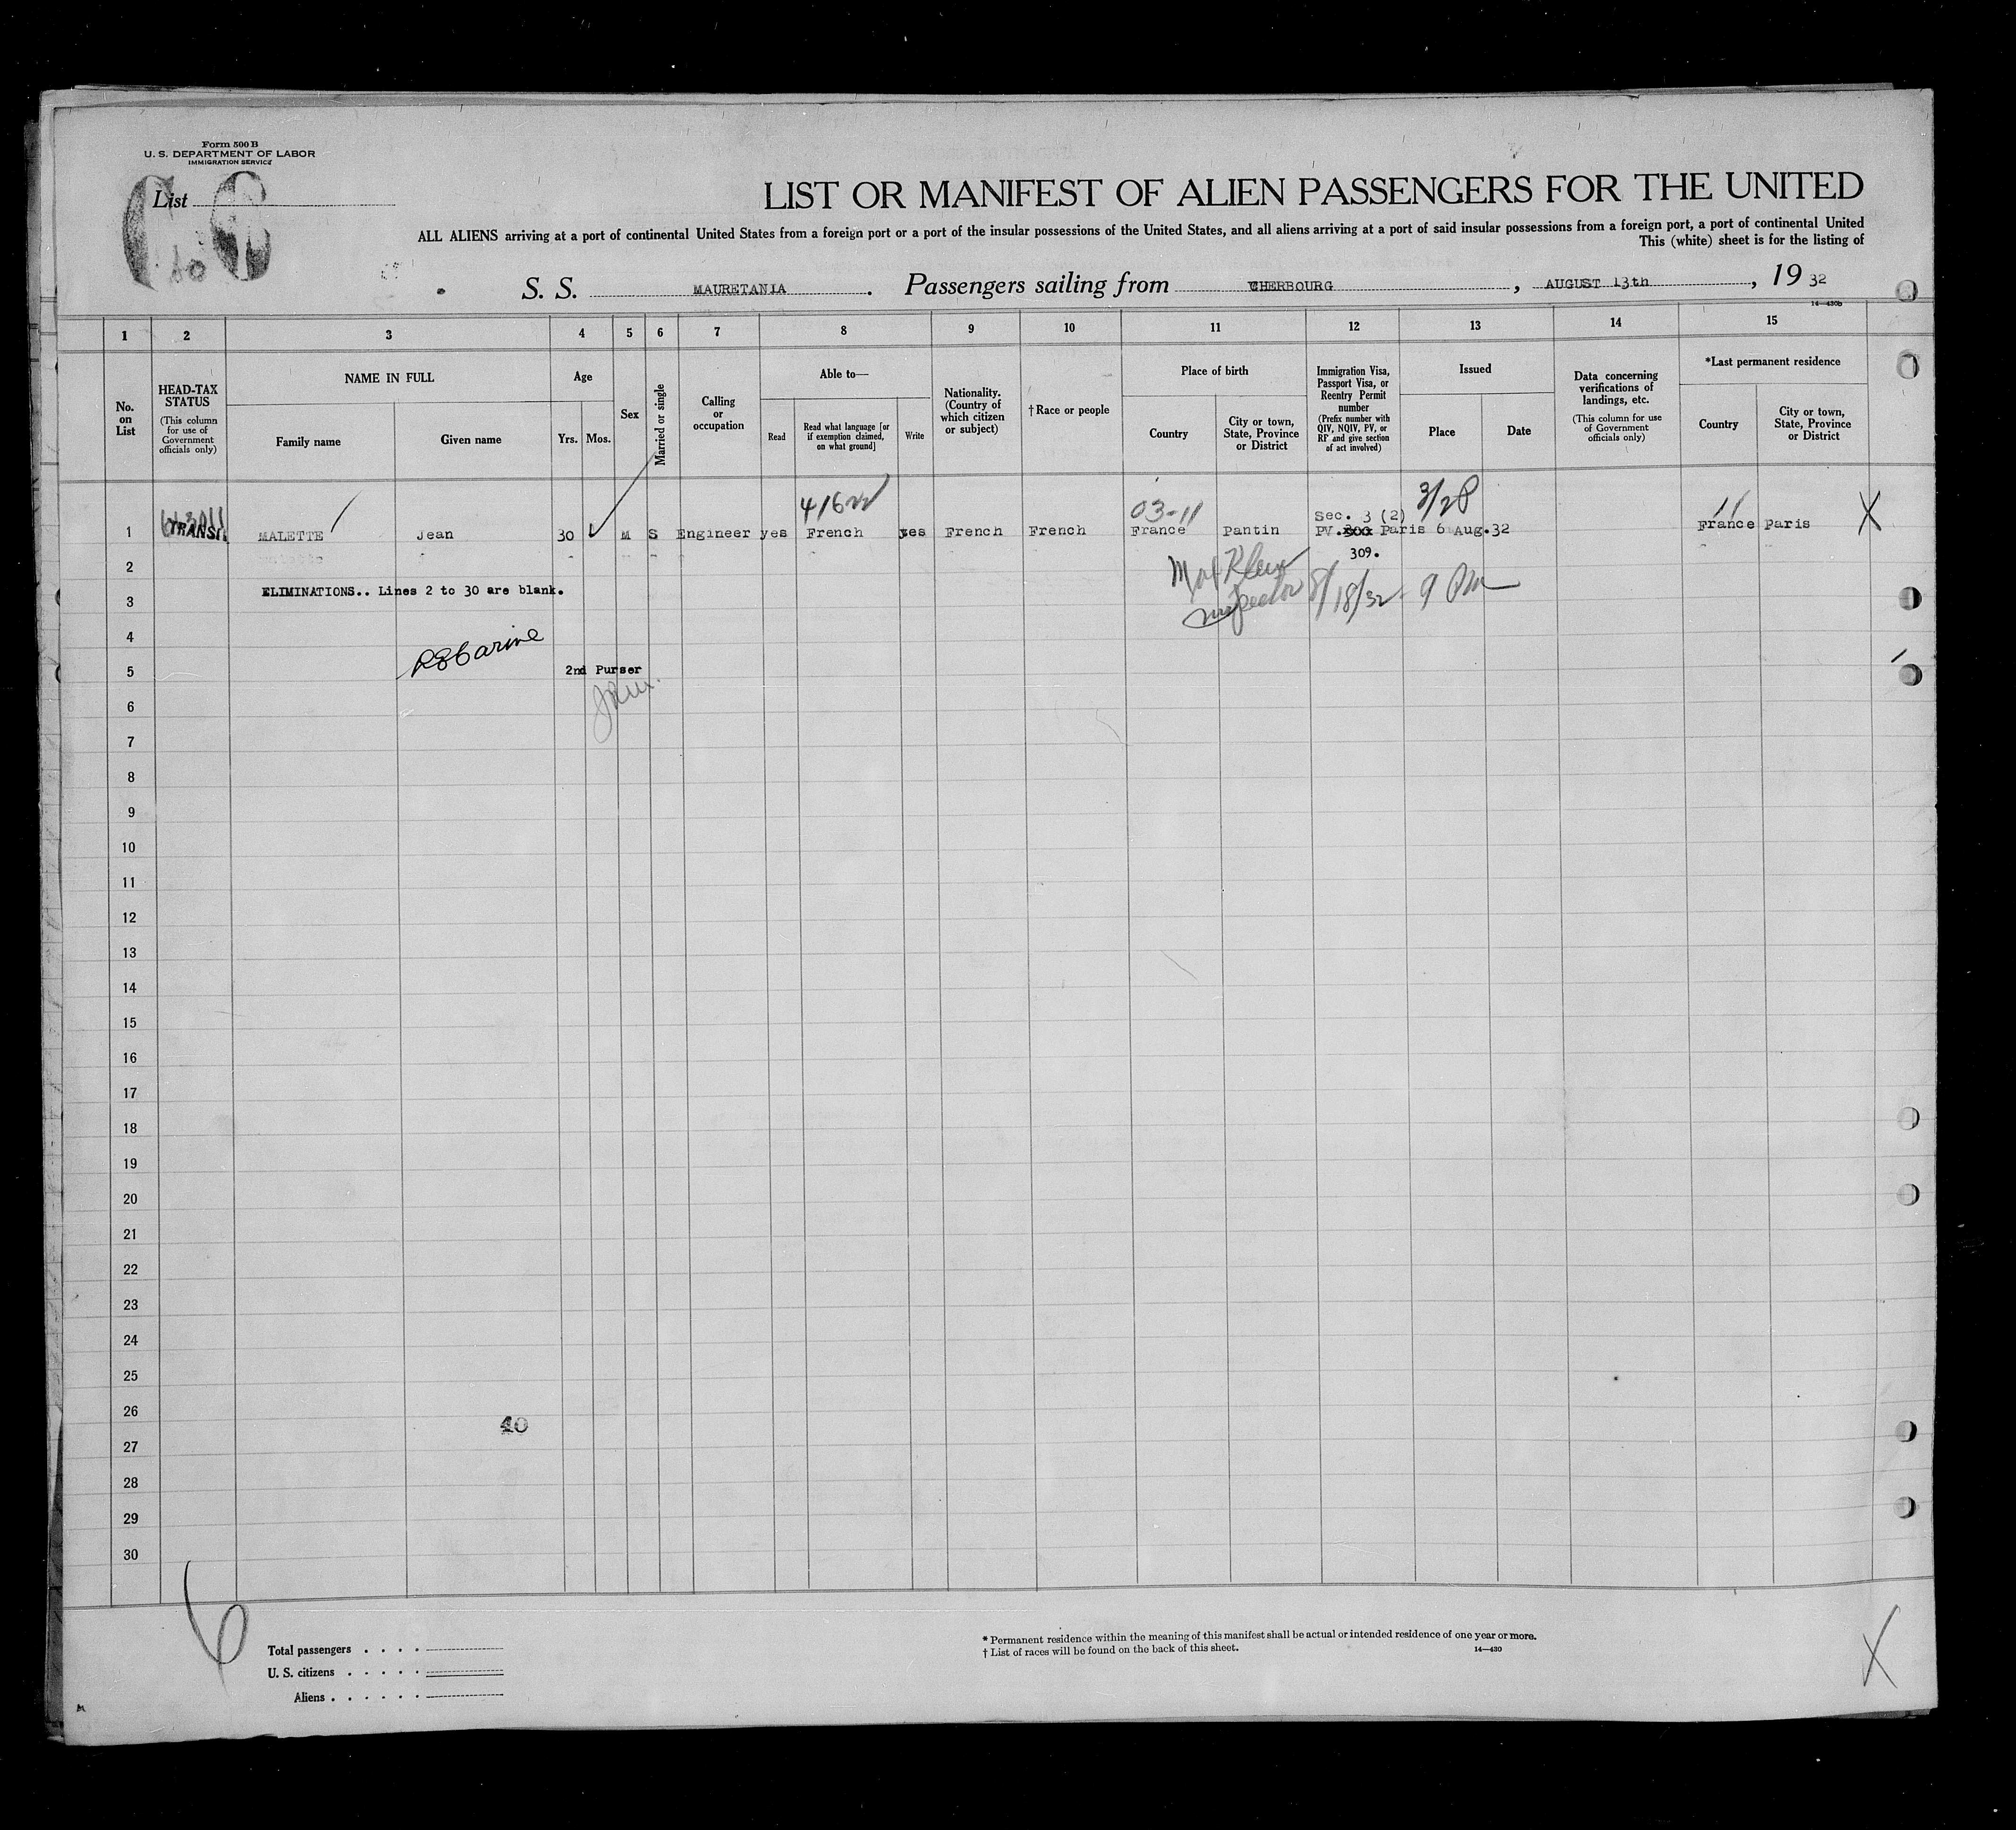 Form 500 B
U. S. DEPARTMENT OF LABOR
IMMIGRATION SERVICE
List
60
LIST OR MANIFEST OF ALIEN PASSENGERS FOR THE UNITED
ALL ALIENS arriving at a port of continental United States from a foreign port or a port of the insular possessions of the United States, and all aliens arriving at a port of said insular possessions from a foreign port, a port of continental United
This (white) sheet is for the listing of
S. S. MAURETANIA. Passengers sailing from CHERBOURG, AUGUST 13th, 19 32
14—430b
1 2 3 4 5 6 7 8 9 10 11 12 13 14 15
No. on List
HEAD-TAX STATUS (This column for use of Government officials only)
NAME IN FULL
Family name Given name
Age
Yrs. Mos.
Sex
Married or single
Calling or occupation
Able to—
Read Read what language [or if exemption claimed, on what ground] Write
Nationality. (Country of which citizen or subject)
†Race or people
Place of birth
Country City or town, State, Province or District
Immigration Visa, Passport Visa, or Reentry Permit number (Prefix number with QIV, NQIV, PV, or RP and give section of act involved)
Issued
Place Date
Data concerning verifications of landings, etc. (This column for use of Government officials only)
*Last permanent residence
Country City or town, State, Province or District
03-11 Sec. 3 (2) 3/28 11
1 TRANSIT MALETTE Jean 30 M S Engineer yes French yes French French France Pantin PV.300 Paris 6 Aug.32 France Paris X
309.
2
Max Klein
Inspector 8/18/32 9 PM
ELIMINATIONS.. Lines 2 to 30 are blank.
3
4
5
2nd Purser
6
7
8
9
10
11
12
13
14
15
16
17
18
19
20
21
22
23
24
25
26
40
27
28
29
30
6
Total passengers . . . .
U. S. citizens . . . . .
Aliens . . . . . .
* Permanent residence within the meaning of this manifest shall be actual or intended residence of one year or more.
† List of races will be found on the back of this sheet. 14—430
X